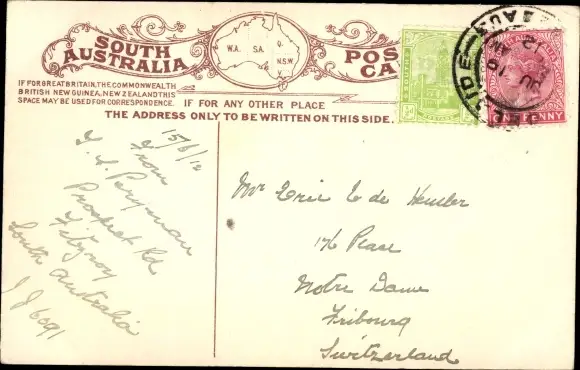 SOUTH AUSTRALIA
W.A. S.A. Q. N.S.W. V.
POST CA
IF FOR GREAT BRITAIN, THE COMMONWEALTH
BRITISH NEW GUINEA, NEW ZEALAND THIS
SPACE MAY BE USED FOR CORRESPONDENCE.
IF FOR ANY OTHER PLACE
THE ADDRESS ONLY TO BE WRITTEN ON THIS SIDE.
ONE PENNY
15/6/12
From
Perryman
Prospect Rd
Fitzroy
South Australia
6091
Mr Eric L de
176 Place
Notre Dame
Fribourg
Switzerland